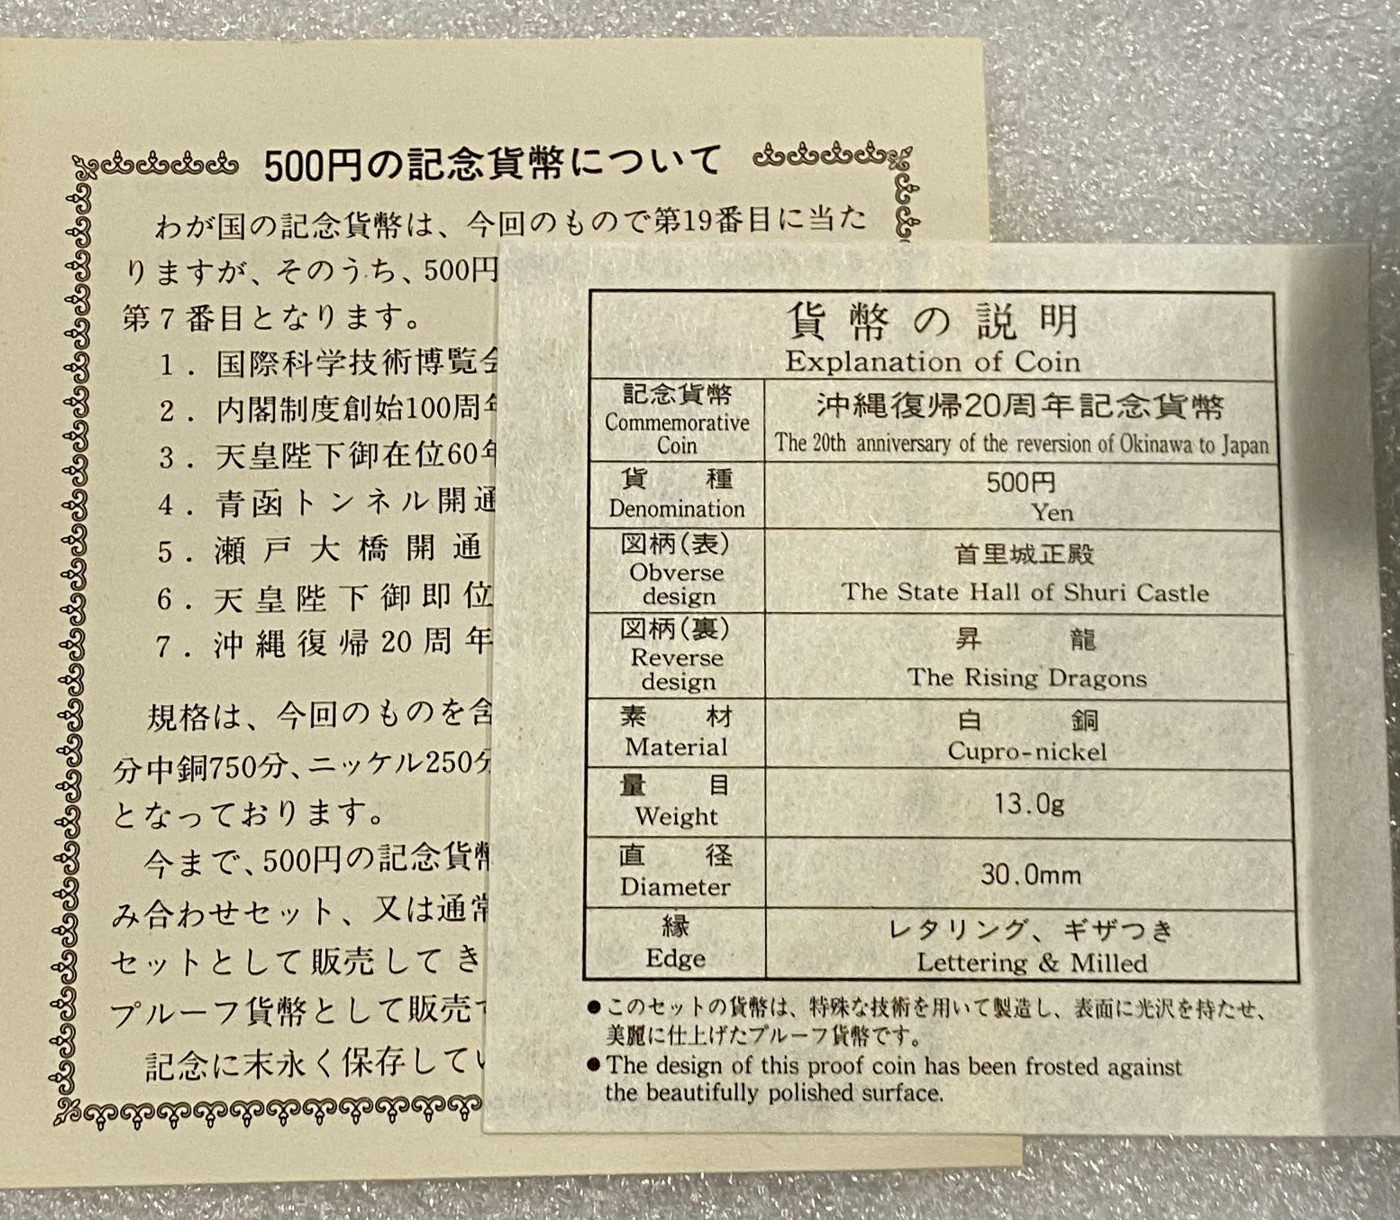 500円の記念貨幣について
わが国の記念貨幣は、今回のもので第19番目に当た
りますが、そのうち、500円
第7番目となります。
1．国際科学技術博覧会
2．内閣制度創始100周年
3．天皇陛下御在位60年
4．青函トンネル開通
5．瀬戸大橋開通
6．天皇陛下御即位
7．沖縄復帰20周年
規格は、今回のものを含
分中銅750分、ニッケル250分
となっております。
今まで、500円の記念貨幣
み合わせセット、又は通常
セットとして販売してき
プルーフ貨幣として販売
記念に末永く保存して
貨幣の説明
Explanation of Coin
記念貨幣
Commemorative
Coin
沖縄復帰20周年記念貨幣
The 20th anniversary of the reversion of Okinawa to Japan
貨種
Denomination
500円
Yen
図柄(表)
Obverse
design
首里城正殿
The State Hall of Shuri Castle
図柄(裏)
Reverse
design
昇龍
The Rising Dragons
素材
Material
白銅
Cupro-nickel
量目
Weight
13.0g
直径
Diameter
30.0mm
縁
Edge
レタリング、ギザつき
Lettering & Milled
●このセットの貨幣は、特殊な技術を用いて製造し、表面に光沢を持たせ、
美麗に仕上げたプルーフ貨幣です。
●The design of this proof coin has been frosted against
the beautifully polished surface.